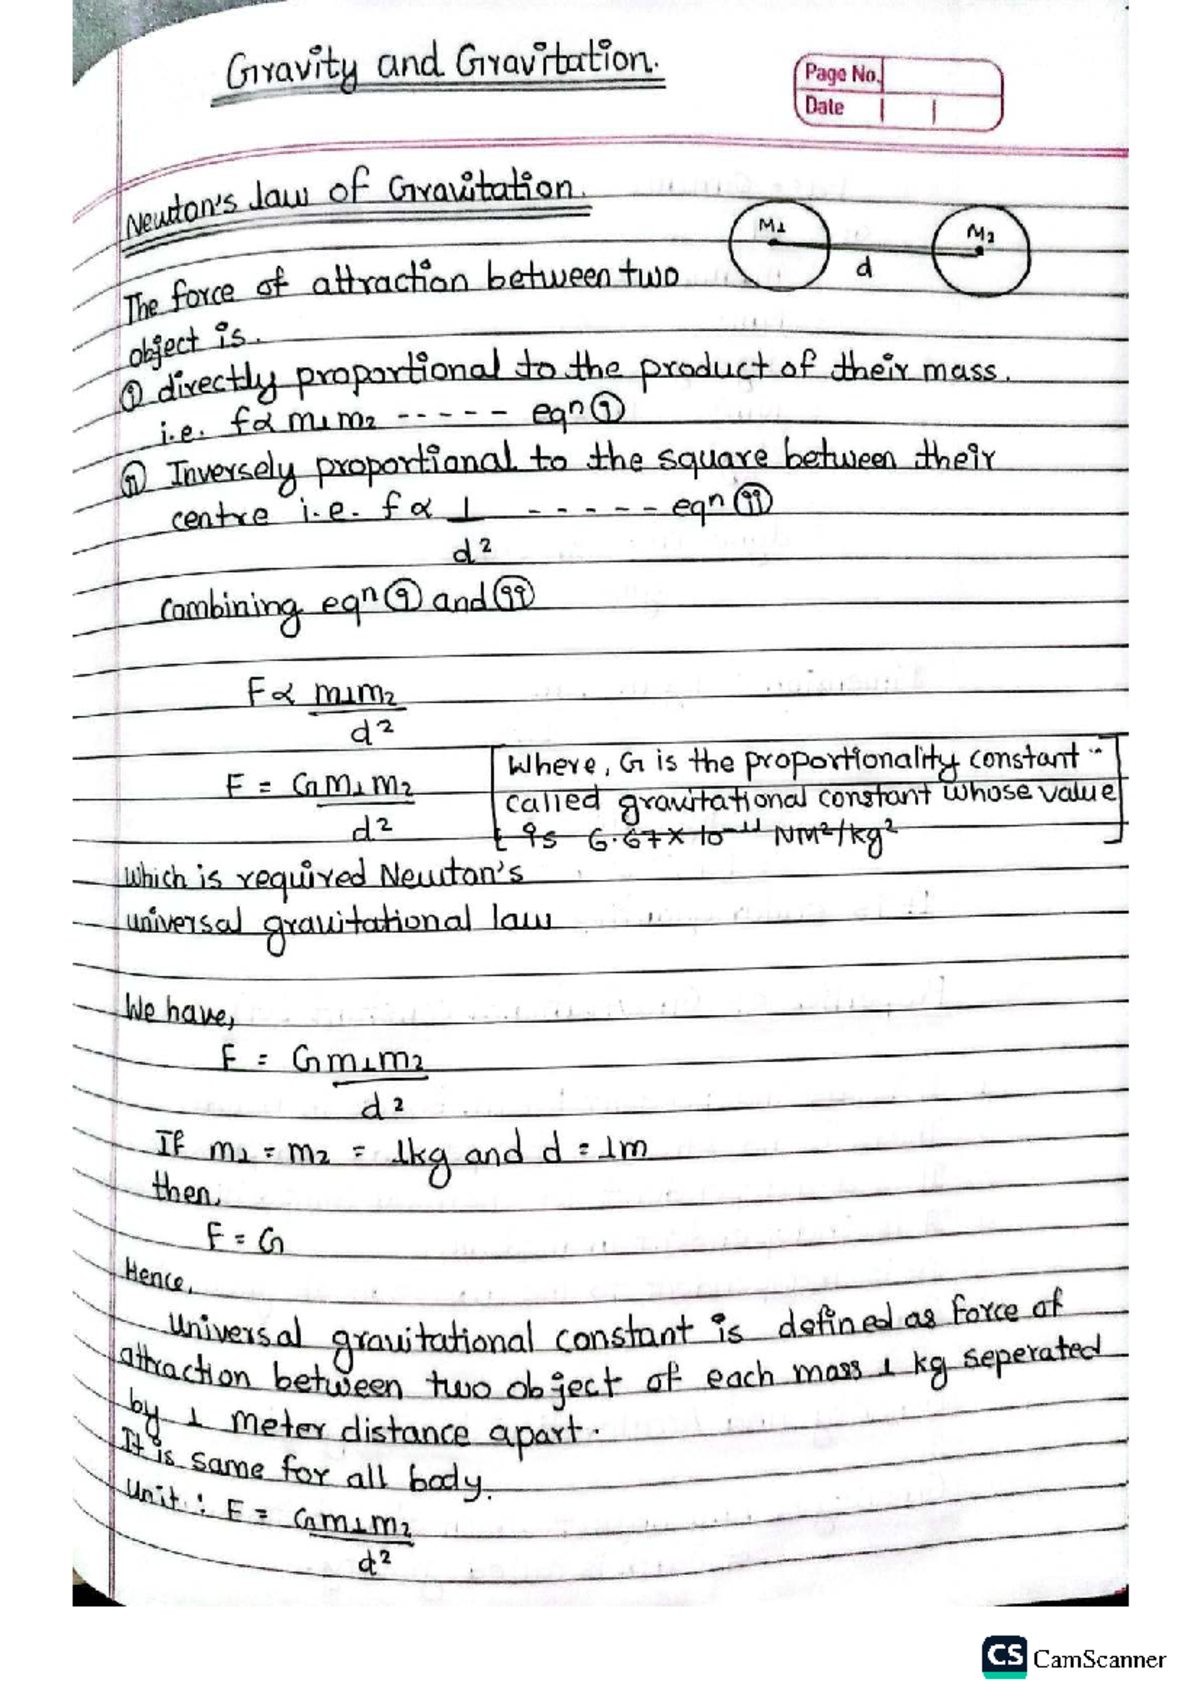 Gravity and Gravitation.
Page No.
Date
Newton's law of Gravitation.
M1
M2
d
The force of attraction between two
object is.
(i) directly proportional to the product of their mass.
i.e. f∝ m1m2 ----- eqn (i)
(ii) Inversely proportional to the square between their
centre i.e. f ∝ 1 ----- eqn (ii)
d²
combining eqn (i) and (ii)
F∝ m1m2
d²
F = Gm1m2
d²
Where, G is the proportionality constant
called gravitational constant whose value
is 6.67×10⁻¹¹ NM²/kg²
which is required Newton's
universal gravitational law
We have,
F = Gm1m2
d²
If m1 = m2 = 1kg and d = 1m
then,
F = G
Hence,
Universal gravitational constant is defined as force of
attraction between two object of each mass 1 kg seperated
by 1 meter distance apart.
It is same for all body.
Unit : F = Gm1m2
d²
CS CamScanner